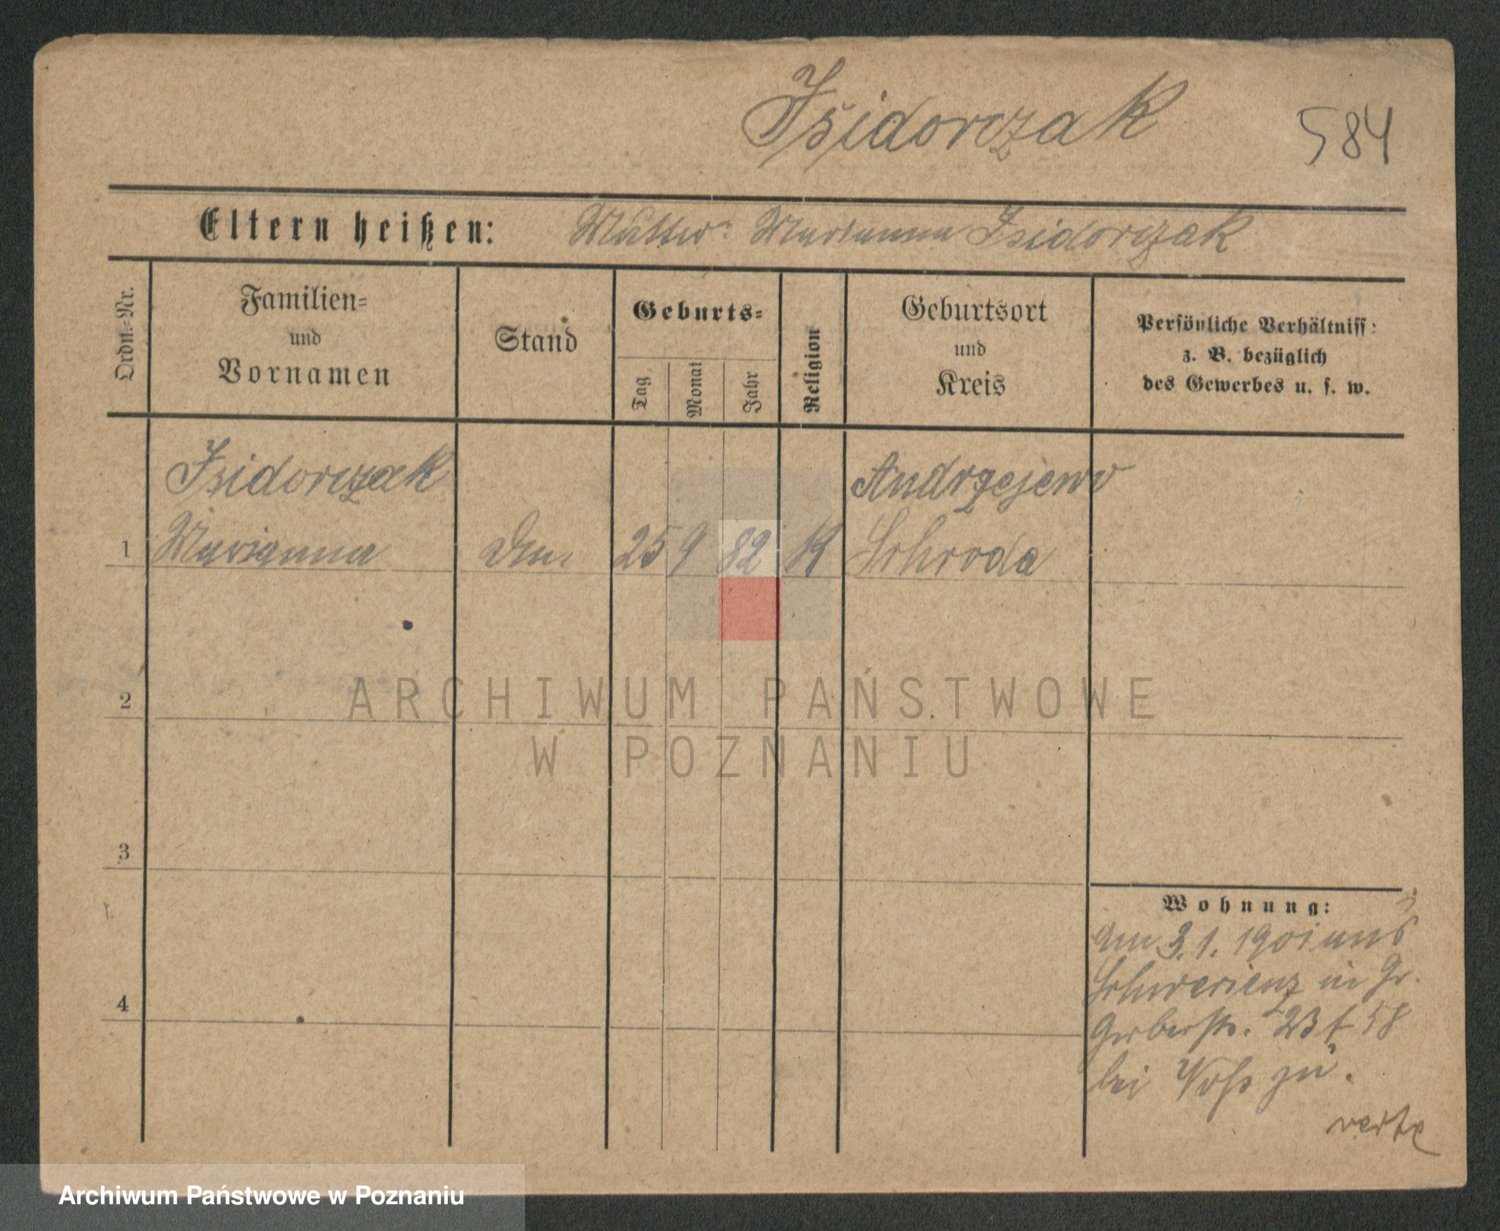 Isidorczak 584
Eltern heißen: Mutter: Marianna Isidorczak
Ordn.-Nr.
Familien-
und
Vornamen
Stand
Geburts-
Tag
Monat
Jahr
Religion
Geburtsort
und
Kreis
Persönliche Verhältniss:
z. B. bezüglich
des Gewerbes u. s. w.
Isidorczak Andrzejewo
1 Marianna 25 9 82 K Schroda
2
ARCHIWUM PAŃSTWOWE
W POZNANIU
3
Wohnung:
Am 3.1.1901 aus
in Gr.
4
Gerberstr. 23
bei Voss zu.
verte
Archiwum Państwowe w Poznaniu